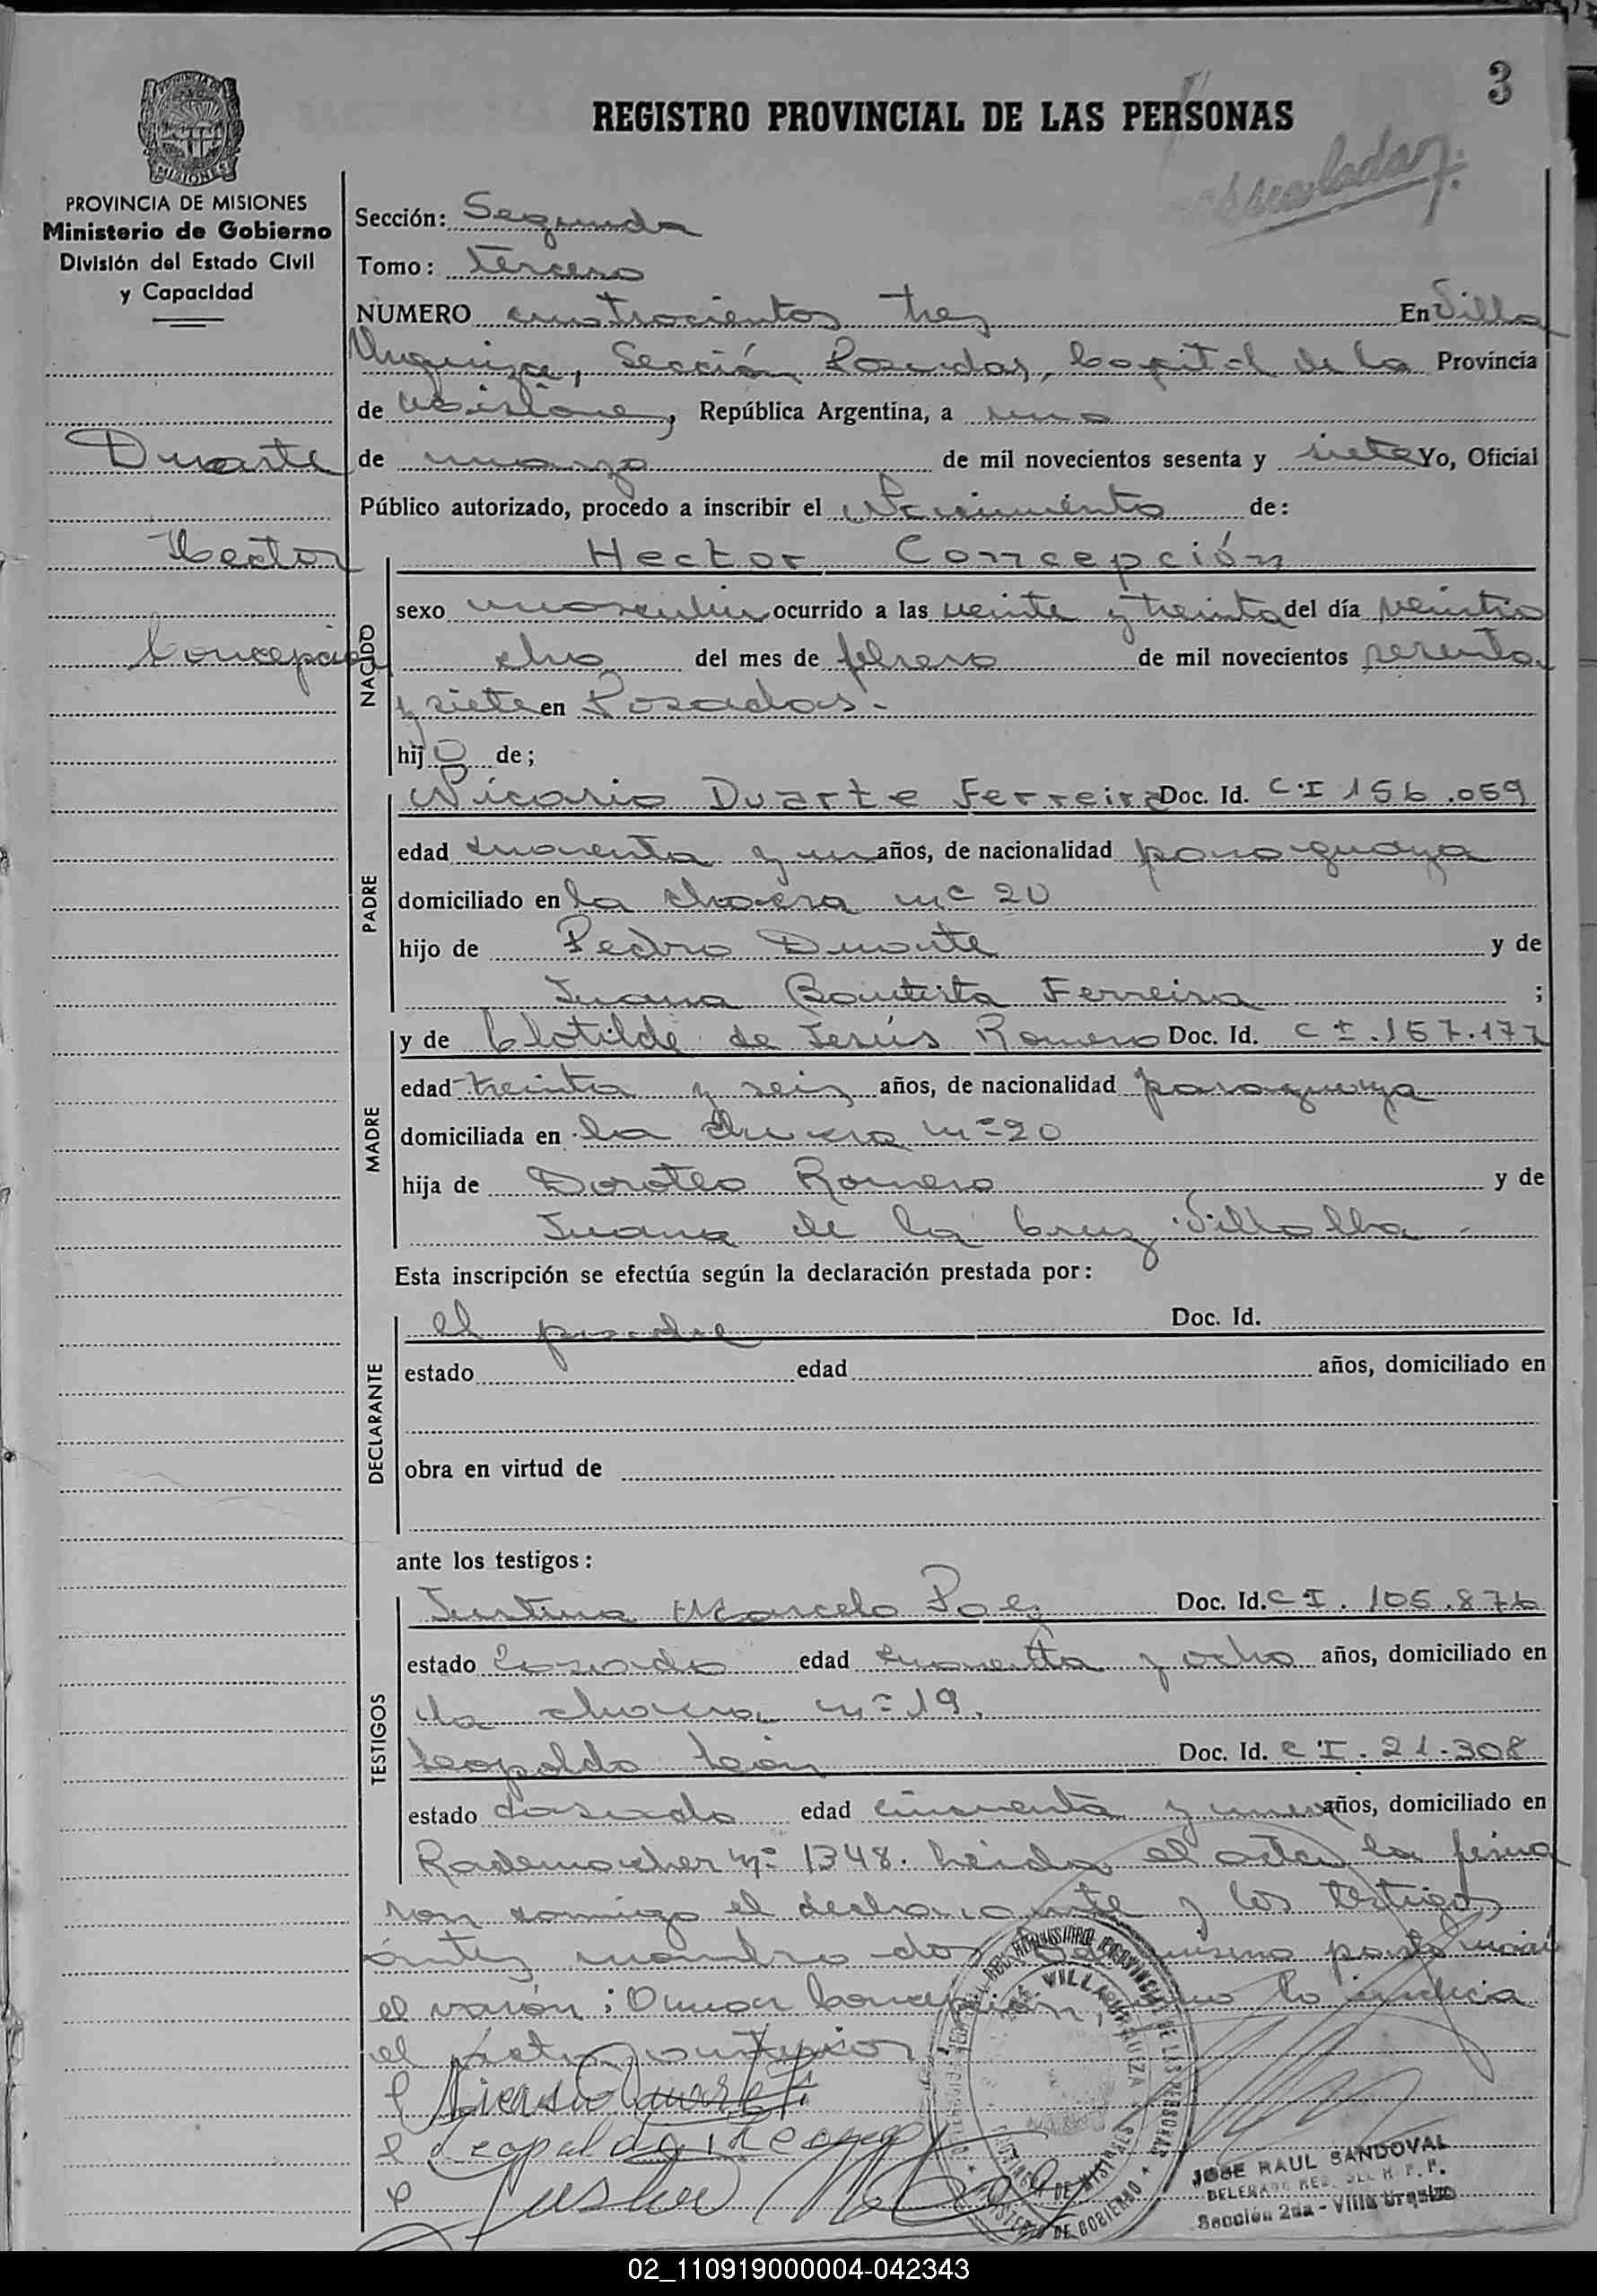 3
REGISTRO PROVINCIAL DE LAS PERSONAS
PROVINCIA DE MISIONES
Ministerio de Gobierno
División del Estado Civil
y Capacidad
Duarte
Hector
Concepción
Sección: Segunda
Tomo: tercero
NUMERO cuatrocientos tres En Villa
Urquiza, Sección Posadas, Capital de la Provincia
de Misiones, República Argentina, a uno
de marzo de mil novecientos sesenta y siete Yo, Oficial
Público autorizado, procedo a inscribir el Nacimiento de:
NACIDO
Hector Concepción
sexo masculino ocurrido a las veinte y treinta del día veintio
cho del mes de febrero de mil novecientos sesenta
y siete en Posadas.-
hijo de;
PADRE
Nicasio Duarte Ferreira Doc. Id. C.I 156.059
edad cuarenta y un años, de nacionalidad paraguaya
domiciliado en la chacra nº 20
hijo de Pedro Duarte y de
Juana Bautista Ferreira ;
MADRE
y de Clotilde de Jesús Romero Doc. Id. C I.157.177
edad treinta y seis años, de nacionalidad paraguaya
domiciliada en la chacra nº 20
hija de Doroteo Romero y de
Juana de la Cruz Villalba -
Esta inscripción se efectúa según la declaración prestada por:
DECLARANTE
el padre Doc. Id.
estado edad años, domiciliado en
obra en virtud de
ante los testigos:
TESTIGOS
Justino Marcelo Doc. Id. C I. 105.876
estado Casado edad cuarenta y ocho años, domiciliado en
la chacra nº 19.
Leopoldo León Doc. Id. C I. 21.308
estado Casado edad cincuenta y nueve años, domiciliado en
Rademacher nº 1348. Leida el acta la firma
ron conmigo el declarante y los testigos
antes nombrados. mismo parto nació
el varón: Omar Concepción, como lo indica
el acta anterior
JOSE RAUL SANDOVAL
Sección 2da - Villa Urquiza
02_110919000004-042343